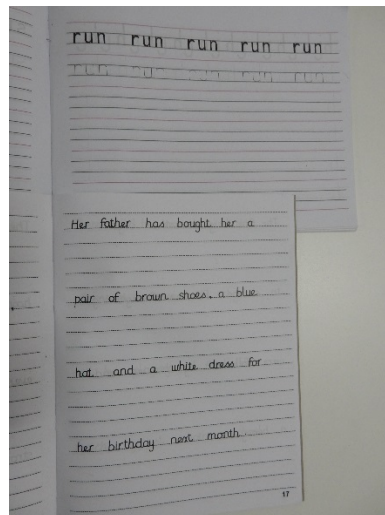 run run run run run
run run run run run
Her father has bought her a
pair of brown shoes, a blue
hat and a white dress for
her birthday next month.
17